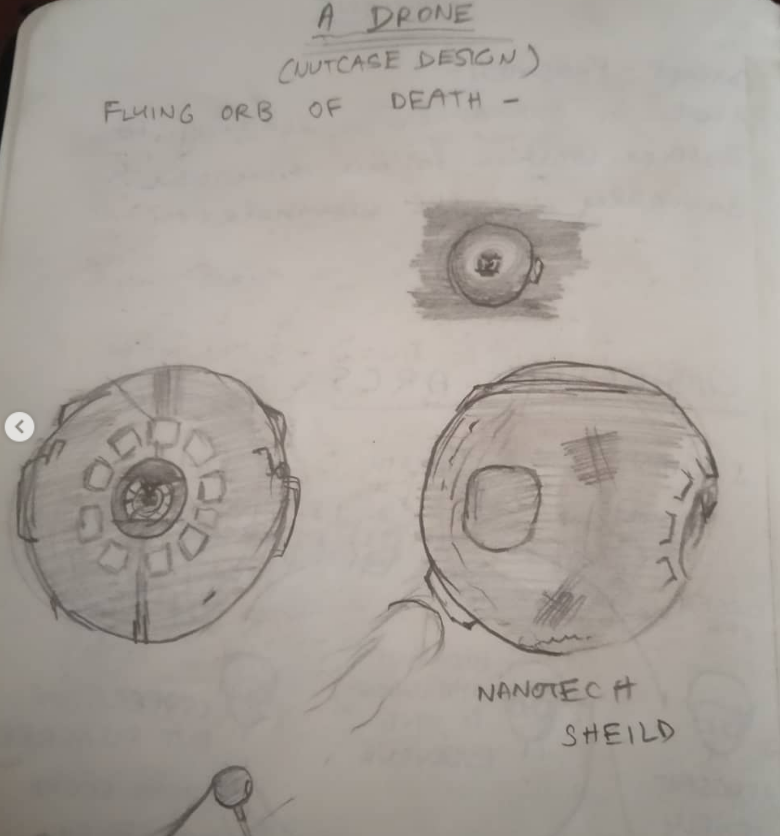 A DRONE
(NUTCASE DESIGN)
FLYING ORB OF DEATH -
NANOTECH
SHEILD